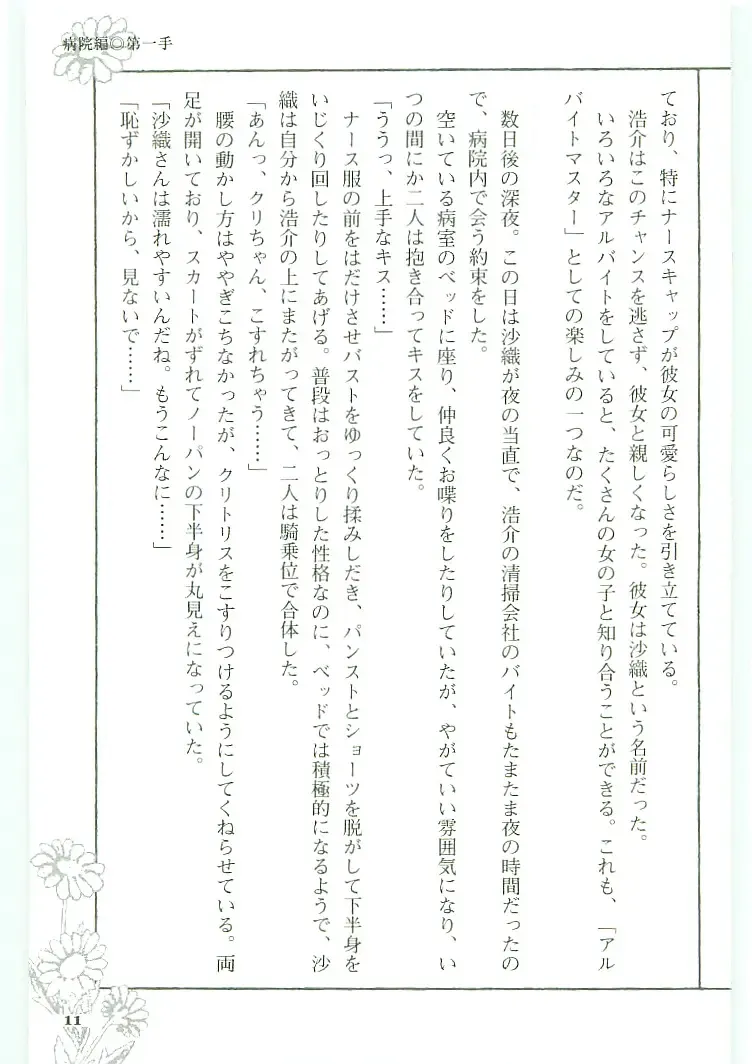 病院編◎第一手
ており、特にナースキャップが彼女の可愛らしさを引き立てている。
浩介はこのチャンスを逃さず、彼女と親しくなった。彼女は沙織という名前だった。
いろいろなアルバイトをしていると、たくさんの女の子と知り合うことができる。これも、「アル
バイトマスター」としての楽しみの一つなのだ。
数日後の深夜。この日は沙織が夜の当直で、浩介の清掃会社のバイトもたまたま夜の時間だったの
で、病院内で会う約束をした。
空いている病室のベッドに座り、仲良くお喋りをしたりしていたが、やがていい雰囲気になり、い
つの間にか二人は抱き合ってキスをしていた。
「ううっ、上手なキス……」
ナース服の前をはだけさせバストをゆっくり揉みしだき、パンストとショーツを脱がして下半身を
いじくり回したりしてあげる。普段はおっとりした性格なのに、ベッドでは積極的になるようで、沙
織は自分から浩介の上にまたがってきて、二人は騎乗位で合体した。
「あんっ、クリちゃん、こすれちゃう……」
腰の動かし方はややぎこちなかったが、クリトリスをこすりつけるようにしてくねらせている。両
足が開いており、スカートがずれてノーパンの下半身が丸見えになっていた。
「沙織さんは濡れやすいんだね。もうこんなに……」
「恥ずかしいから、見ないで……」
11